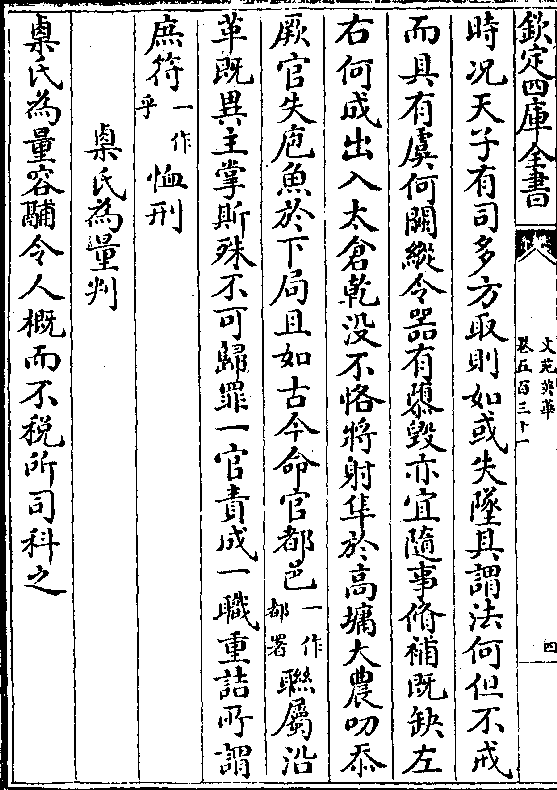 欽定四庫全書
文苑英華
卷五百三十一
四
時况天子有司多方取則如或失墜其謂法何但不戒
而具有虞何闕縱令器有隳毀亦宜隨事脩補既缺左
右何成出入太倉乾没不恪將射隼於高墉大農叨忝
厥官失庖魚於下局且如古今命官都邑一作都署聯屬沿
革既異主掌斯殊不可歸罪一官責成一職重詰所謂
庶符一作乎恤刑
㮚氏為量判
㮚氏為量容鬴令人概而不税所司科之